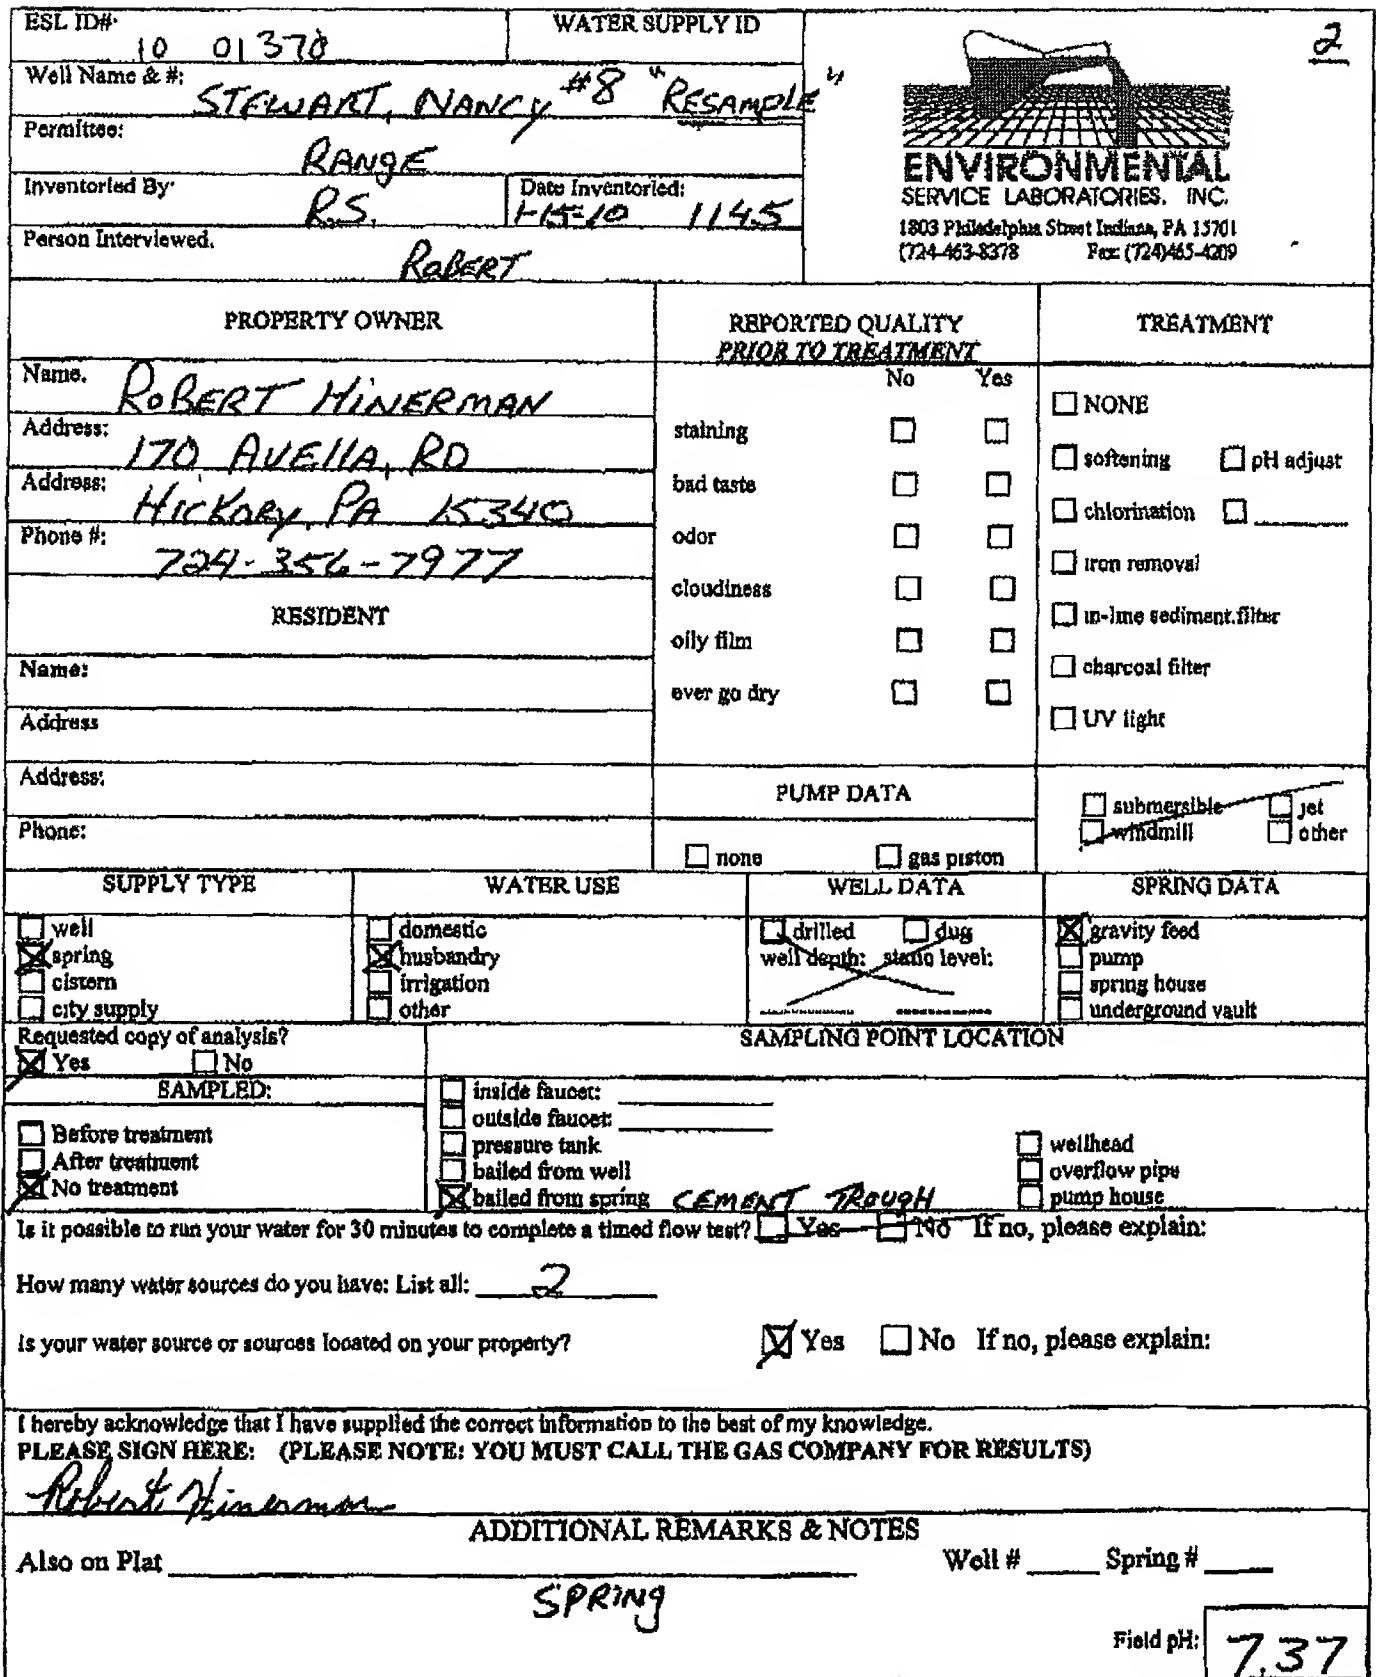 ESL ID#: 10 01370
WATER SUPPLY ID
2
Well Name & #: STEWART, NANCY #8 "RESAMPLE"
Permittee: RANGE
Inventoried By: R.S.
Date Inventoried: 1-15-10 1145
Person Interviewed. ROBERT
ENVIRONMENTAL
SERVICE LABORATORIES, INC.
1803 Philadelphia Street Indiana, PA 15701
(724-463-8378 Fax: (724)465-4209
PROPERTY OWNER
Name. ROBERT HINERMAN
Address: 170 AVElla, RD
Address: HICKORY, PA 15340
Phone #: 724-356-7977
RESIDENT
Name:
Address
Address:
Phone:
REPORTED QUALITY
PRIOR TO TREATMENT
No Yes
staining
bad taste
odor
cloudiness
oily film
ever go dry
TREATMENT
NONE
softening pH adjust
chlorination
iron removal
in-line sediment.filter
charcoal filter
UV light
PUMP DATA
none gas piston
submersible jet
windmill other
SUPPLY TYPE
well
spring
cistern
city supply
WATER USE
domestic
husbandry
irrigation
other
WELL DATA
drilled dug
well depth: static level:
SPRING DATA
gravity feed
pump
spring house
underground vault
Requested copy of analysis?
Yes No
SAMPLED:
Before treatment
After treatment
No treatment
SAMPLING POINT LOCATION
inside faucet:
outside faucet:
pressure tank
bailed from well
bailed from spring CEMENT TROUGH
wellhead
overflow pipe
pump house
Is it possible to run your water for 30 minutes to complete a timed flow test? Yes No If no, please explain:
How many water sources do you have: List all: 2
Is your water source or sources located on your property? Yes No If no, please explain:
I hereby acknowledge that I have supplied the correct information to the best of my knowledge.
PLEASE SIGN HERE: (PLEASE NOTE: YOU MUST CALL THE GAS COMPANY FOR RESULTS)
Robert Hinerman
ADDITIONAL REMARKS & NOTES
Also on Plat Well # Spring #
SPRING
Field pH: 7.37